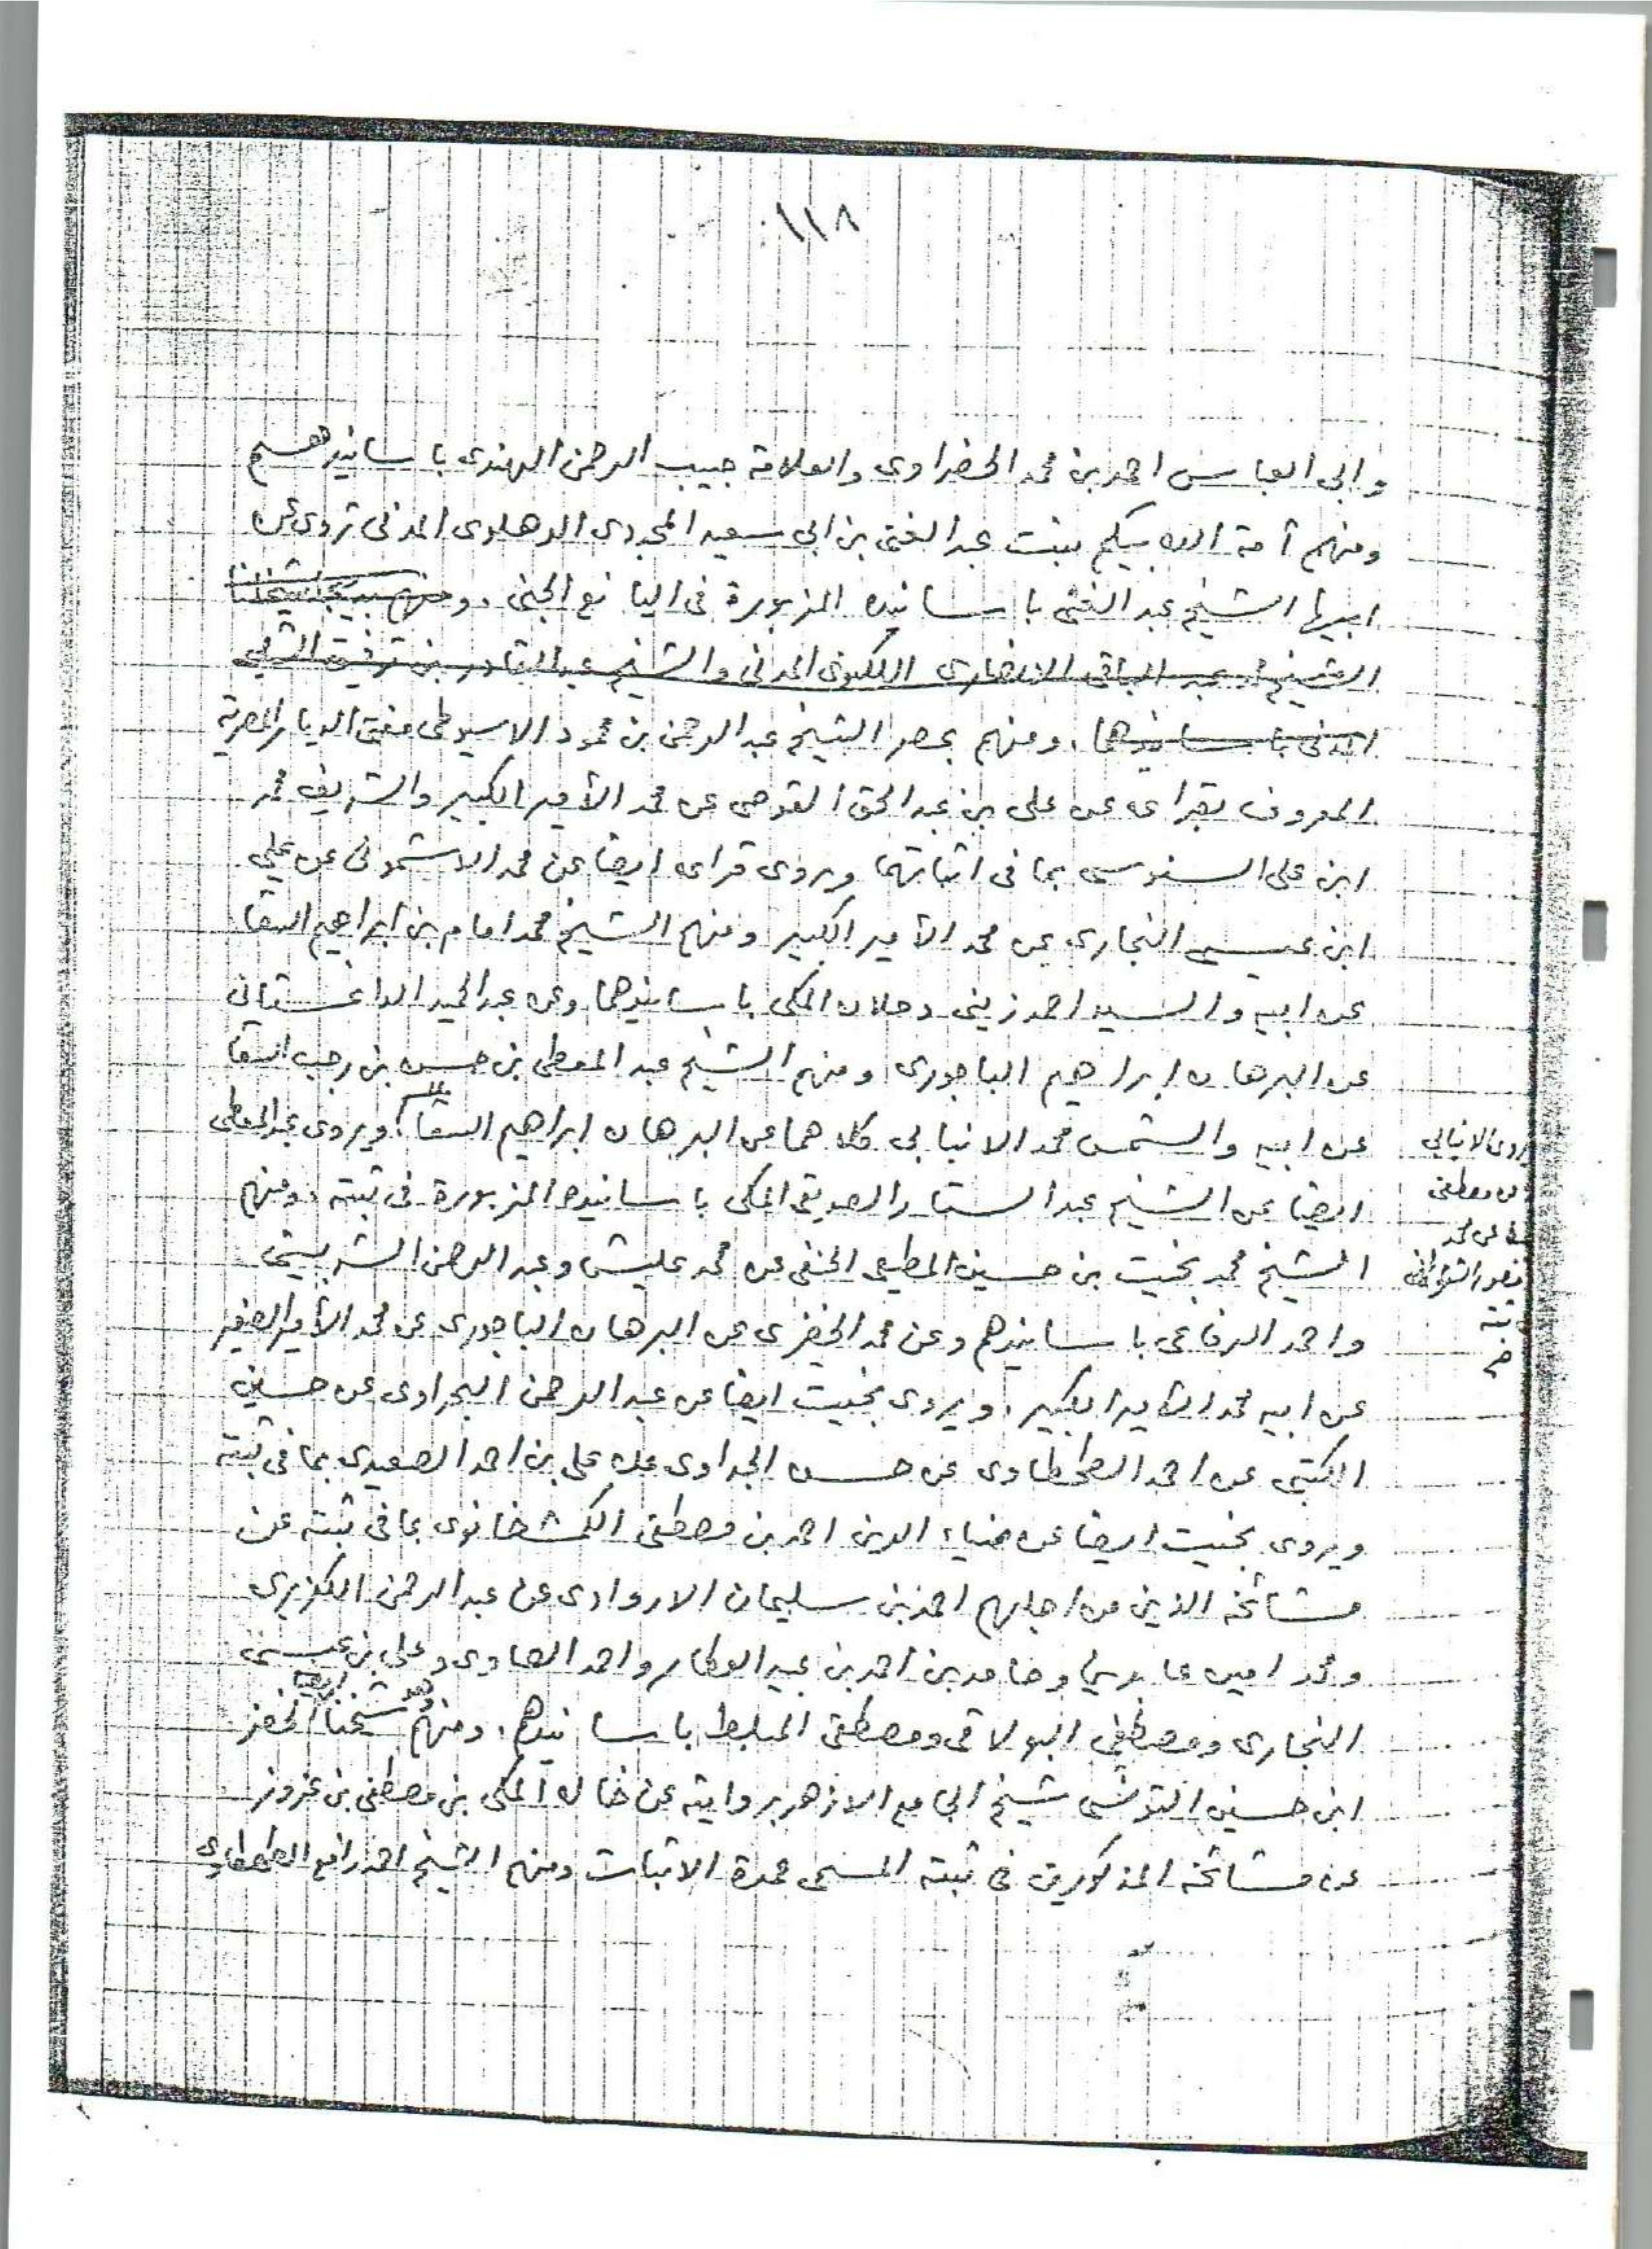 ١١٨
وابى العباس احمد بن محمد الحضراوى والعلامة حبيب الرحمن الهندى باسانيدهم
ومنهم أمة الله بيكم بنت عبد الغنى بن ابى سعيد المجددى الدهلوى المدنى تروى عن
ابيها الشيخ عبد الغنى باسانيده المزبورة فى اليانع الجنى . ومنهم
الشيخ عبد الباقى الانصارى اللكنوى المدنى والشيخ عبد القادر بن توفيق الشلبى
المدنى باسانيدهما . ومنهم بمصر الشيخ عبد الرحمن بن محمود الاسيوطى مفتى الديار المصرية
المعروف بقراعه عن على بن عبد الحق القوصى عن محمد الأمير الكبير والشريف محمد
ابن على السنوسى بما فى اثباتهما ويروى قراعه ايضا عن محمد الاشمونى عن على
ابن عيسى النجارى عن محمد الأمير الكبير ومنهم الشيخ محمد امام بن ابراهيم السقا
عن ابيه والسيد احمد زينى دحلان المكى باسانيدهما وعن عبد الحميد الداغستانى
عن البرهان ابراهيم الباجورى ومنهم الشيخ عبد المعطى بن حسن بن رجب السقا
عن ابيه والشمس محمد الانبابى كلاهما عن البرهان ابراهيم السقا . ويروى عبد المعطى
ايضا عن الشيخ عبد الستار الصديقى المكى باسانيده المزبورة فى ثبته . ومنهم
الشيخ محمد بخيت بن حسين المطيعى الحنفى عن محمد عليش وعبد الرحمن الشربينى
واحمد الرفاعى باسانيدهم وعن محمد الخضرى عن البرهان الباجورى عن محمد الأمير الصغير
عن ابيه محمد الأمير الكبير . ويروى بخيت ايضا عن عبد الرحمن البحراوى عن حسين
الكتبى عن احمد الطحطاوى عن حسن الجداوى عن على بن احمد الصعيدى بما فى ثبته
ويروى بخيت ايضا عن ضياء الدين احمد بن مصطفى الكمشخانوى بما فى ثبته عن
مشائخه الذين من اجلهم احمد بن سليمان الاروادى عن عبد الرحمن الكزبرى
ومحمد امين عابدين وحامد بن احمد بن عبيد العطار واحمد الصاوى وعلى بن عيسى
النجارى ومصطفى البولاقى ومصطفى المبلط باسانيدهم . ومنهم وهو شيخنا ايضا الخضر
ابن حسين التونسى شيخ الجامع الازهر بروايته عن خاله المكى بن مصطفى بن عزوز
عن مشائخه المذكورين فى ثبته المسمى عمدة الاثبات ومنهم الشيخ احمد رافع الطهطاوى
يروى الانبابى
عن مصطفى
عن محمد